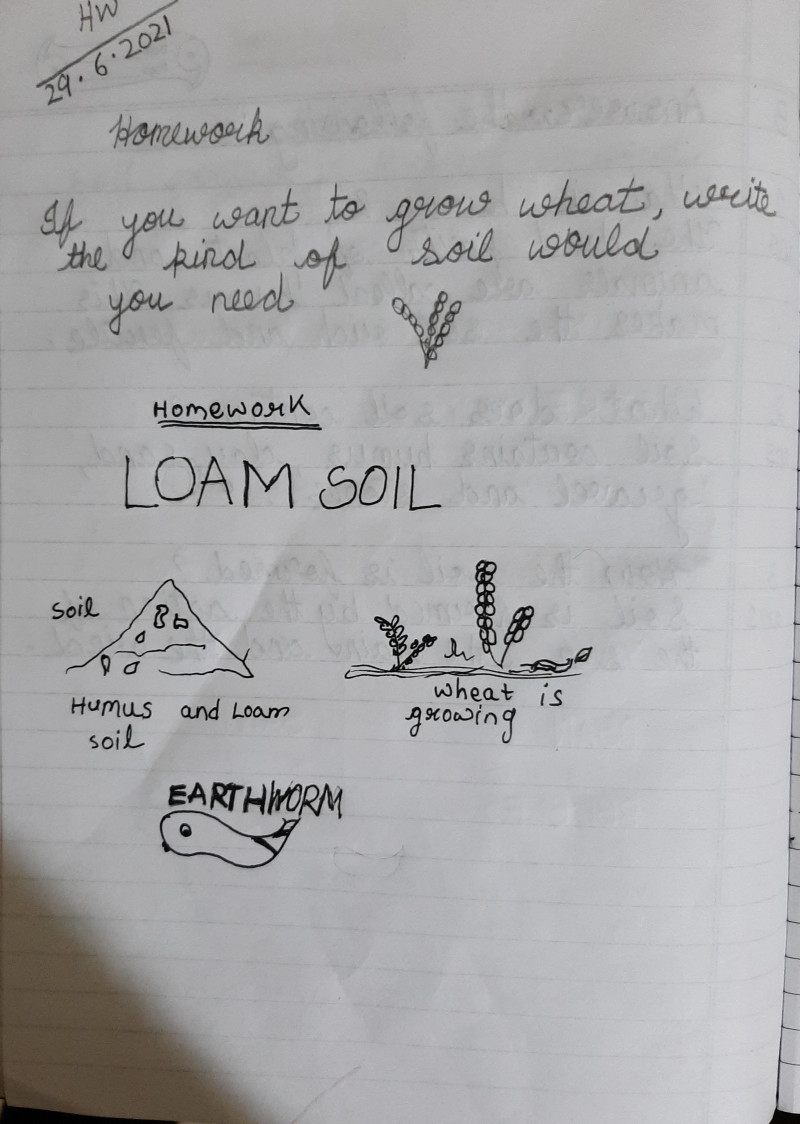 HW
29.6.2021
Homework
If you want to grow wheat, write
the kind of soil would
you need
Homework
LOAM SOIL
soil
Humus and Loam
soil
wheat is
growing
EARTHWORM